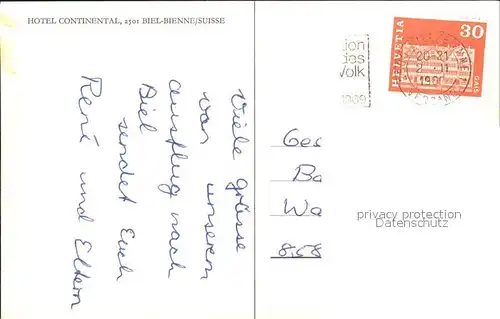 HOTEL CONTINENTAL, 2501 BIEL-BIENNE/SUISSE
Viele grüsse
von unserem
Ausflug nach
Biel
sendet Euch
René und Eltern
tion
des
Volk
1969
20-21
HELVETIA
30
GAIS
Ges
Ba
Wa
858
privacy protection
Datenschutz